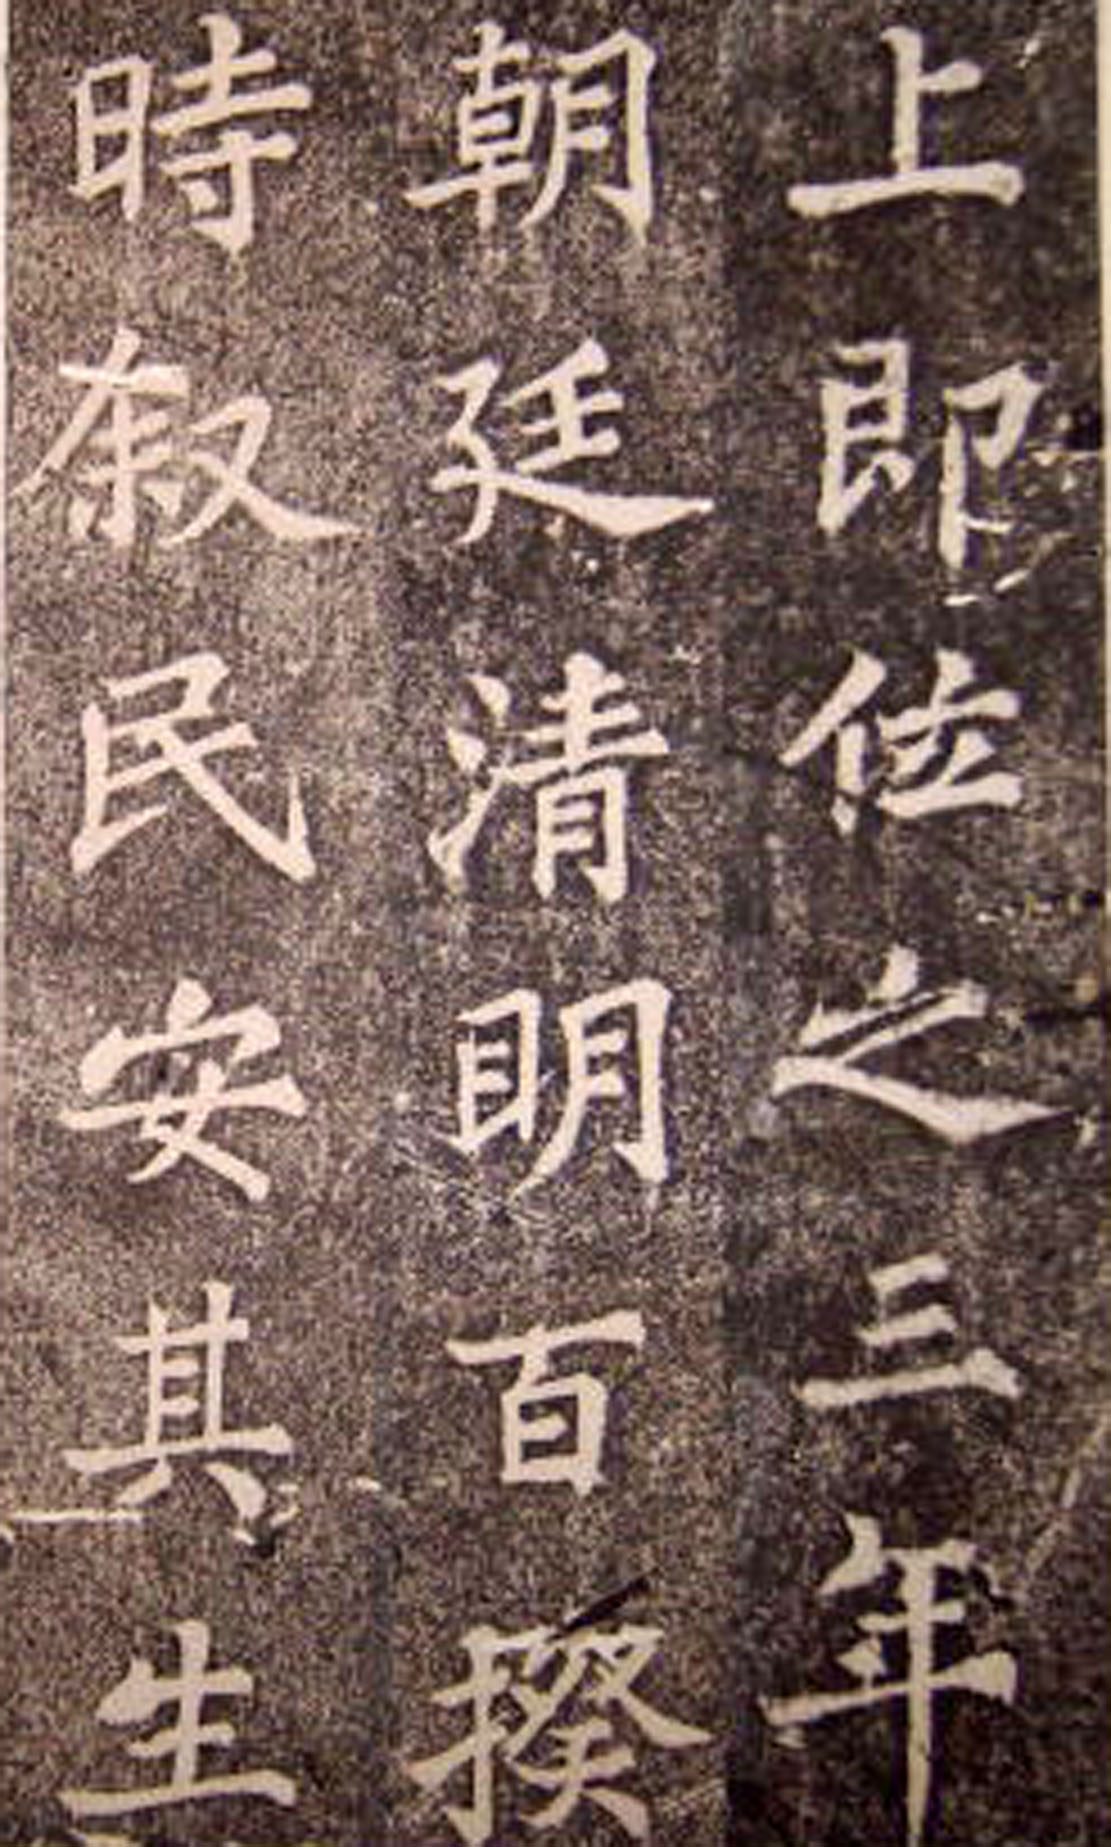 上即位之三年
朝廷清明百揆
時叙民安其生